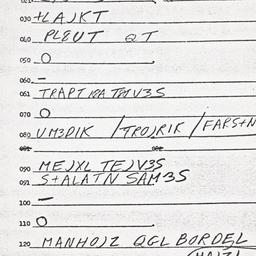 030 +LAJKT
040 PLEUT QT
050 O
060 —
061 TRAPT
070 O
080 UM3DIK /TROJRIK /FARS+N
090 MEJXL TEJV3S
091 S+ALATN SAM3S
100 —
110 O
120 MANHOJZ QGL BORDEL